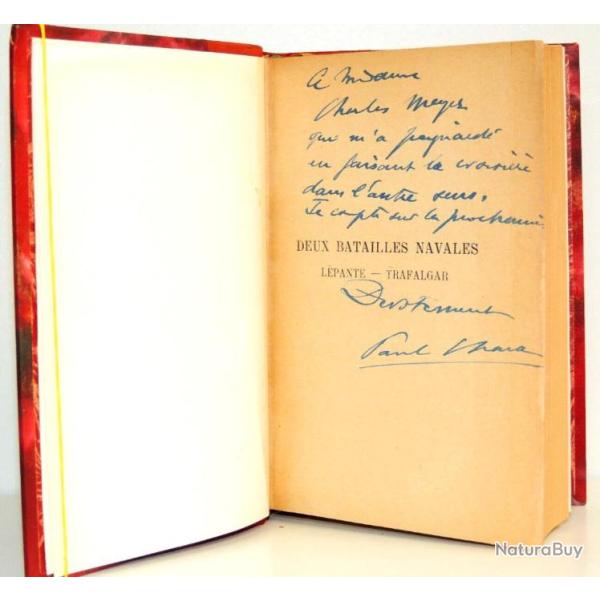 A Madame
Charles Meyer
qui m'a poignardé
en faisant la croisière
dans l'autre sens.
Je compte sur la prochaine
DEUX BATAILLES NAVALES
LÉPANTE — TRAFALGAR
Paul Chack
NaturaBuy